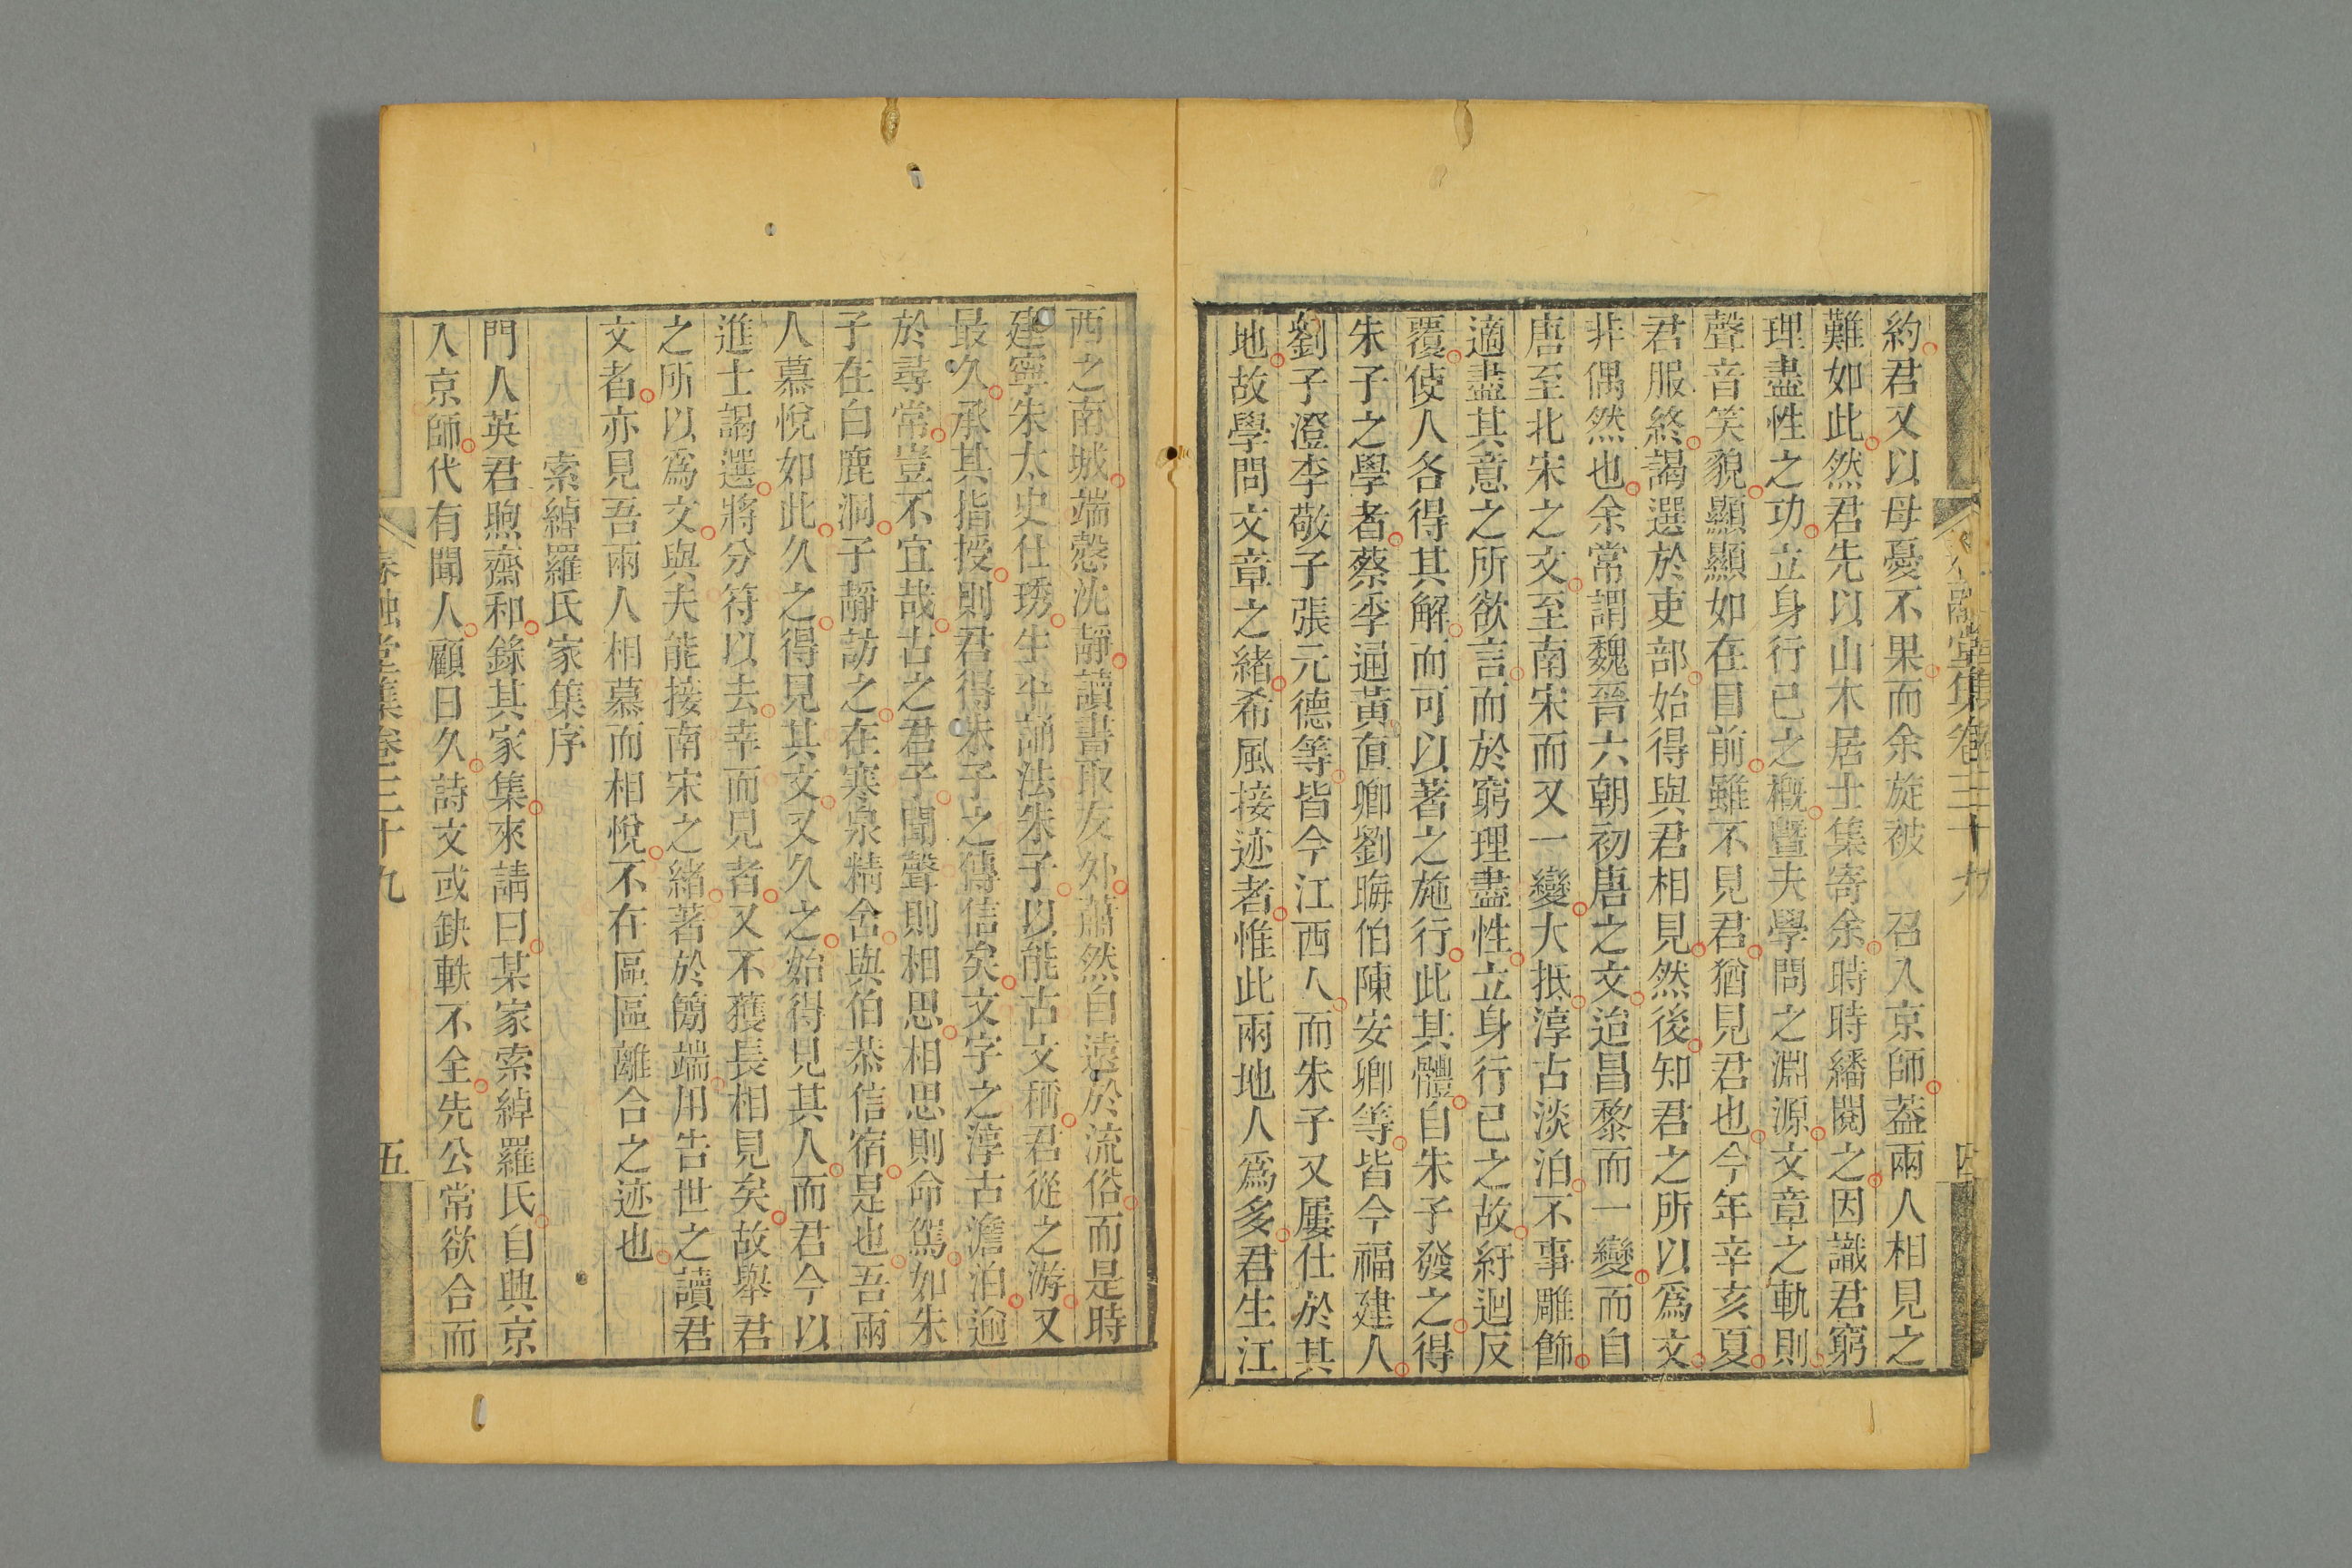 約君又以母憂不果而余旋被 召入京師葢兩人相見之
難如此然君先以山木居士集寄余時時繙閱之因識君窮
理盡性之功立身行已之槪曁夫學問之淵源文章之軌則
聲音笑貌顯顯如在目前雖不見君猶見君也今年辛亥夏
君服終謁選於吏部始得與君相見然後知君之所以爲文
非偶然也余常謂魏晉六朝初唐之文迨昌黎而一變而自
唐至北宋之文至南宋而又一變大抵淳古淡泊不事雕飾
適盡其意之所欲言而於窮理盡性立身行已之故紆迴反
覆使人各得其解而可以著之施行此其體自朱子發之得
朱子之學者蔡季通黃直卿劉晦伯陳安卿等皆今福建人
劉子澄李敬子張元德等皆今江西人而朱子又屢仕於其
地故學問文章之緒希風接迹者惟此兩地人爲多君生江
西之南城端慤沈靜讀書取友外蕭然自遠於流俗而是時
建寧朱太史仕琇生平誦法朱子以能古文稱君從之游又
最久承其指授則君得朱子之傳信矣文字之淳古澹泊逈
於尋常豈不宜哉古之君子聞聲則相思相思則命駕如朱
子在白鹿洞子靜訪之在寒泉精舍與伯恭信宿是也吾兩
人慕悅如此久之得見其文又久之始得見其人而君今以
進士謁選將分符以去幸而見者又不獲長相見矣故舉君
之所以爲文與夫能接南宋之緒著於簡端用告世之讀君
文者亦見吾兩人相慕而相悅不在區區離合之迹也
索綽羅氏家集序
門人英君煦齋和錄其家集來請曰某家索綽羅氏自與京
入京師代有聞人顧日久詩文或缺軼不全先公常欲合而
春融堂集卷三十九
五